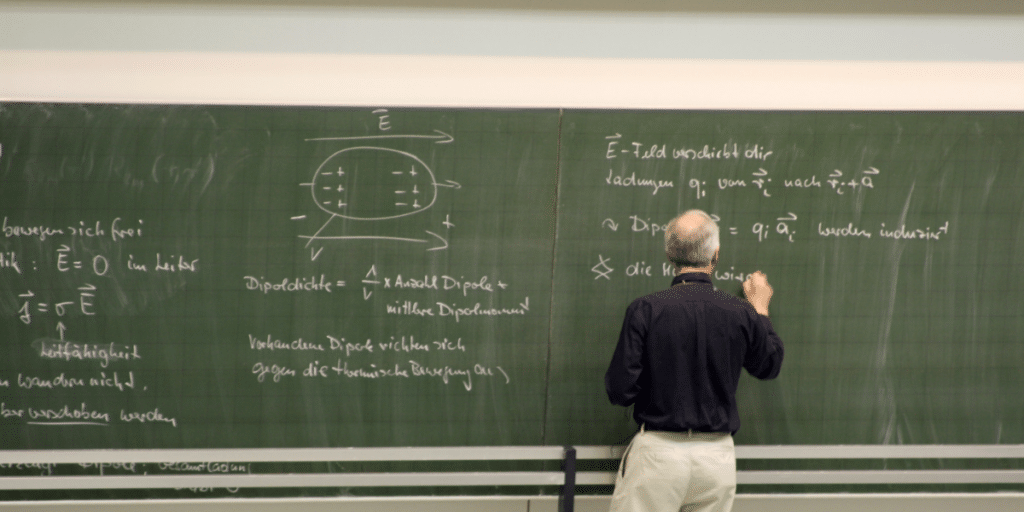 bewegen sich frei
: E⃗ = 0 im Leiter
j⃗ = σ E⃗
↑
Leitfähigkeit
wandern nicht.
verschoben werden
Dipole,
E⃗
- + - +
- + - +
- + - +
- +
V
Dipoldichte = 1/V x Anzahl Dipole x
mittlere Dipolmoment
Vorhandene Dipole richten sich
gegen die thermische Bewegung aus
E⃗-Feld verschiebt die
Ladungen qᵢ von r⃗ᵢ nach r⃗ᵢ + a⃗
↷ Dipo = qᵢ a⃗ᵢ werden induziert
die